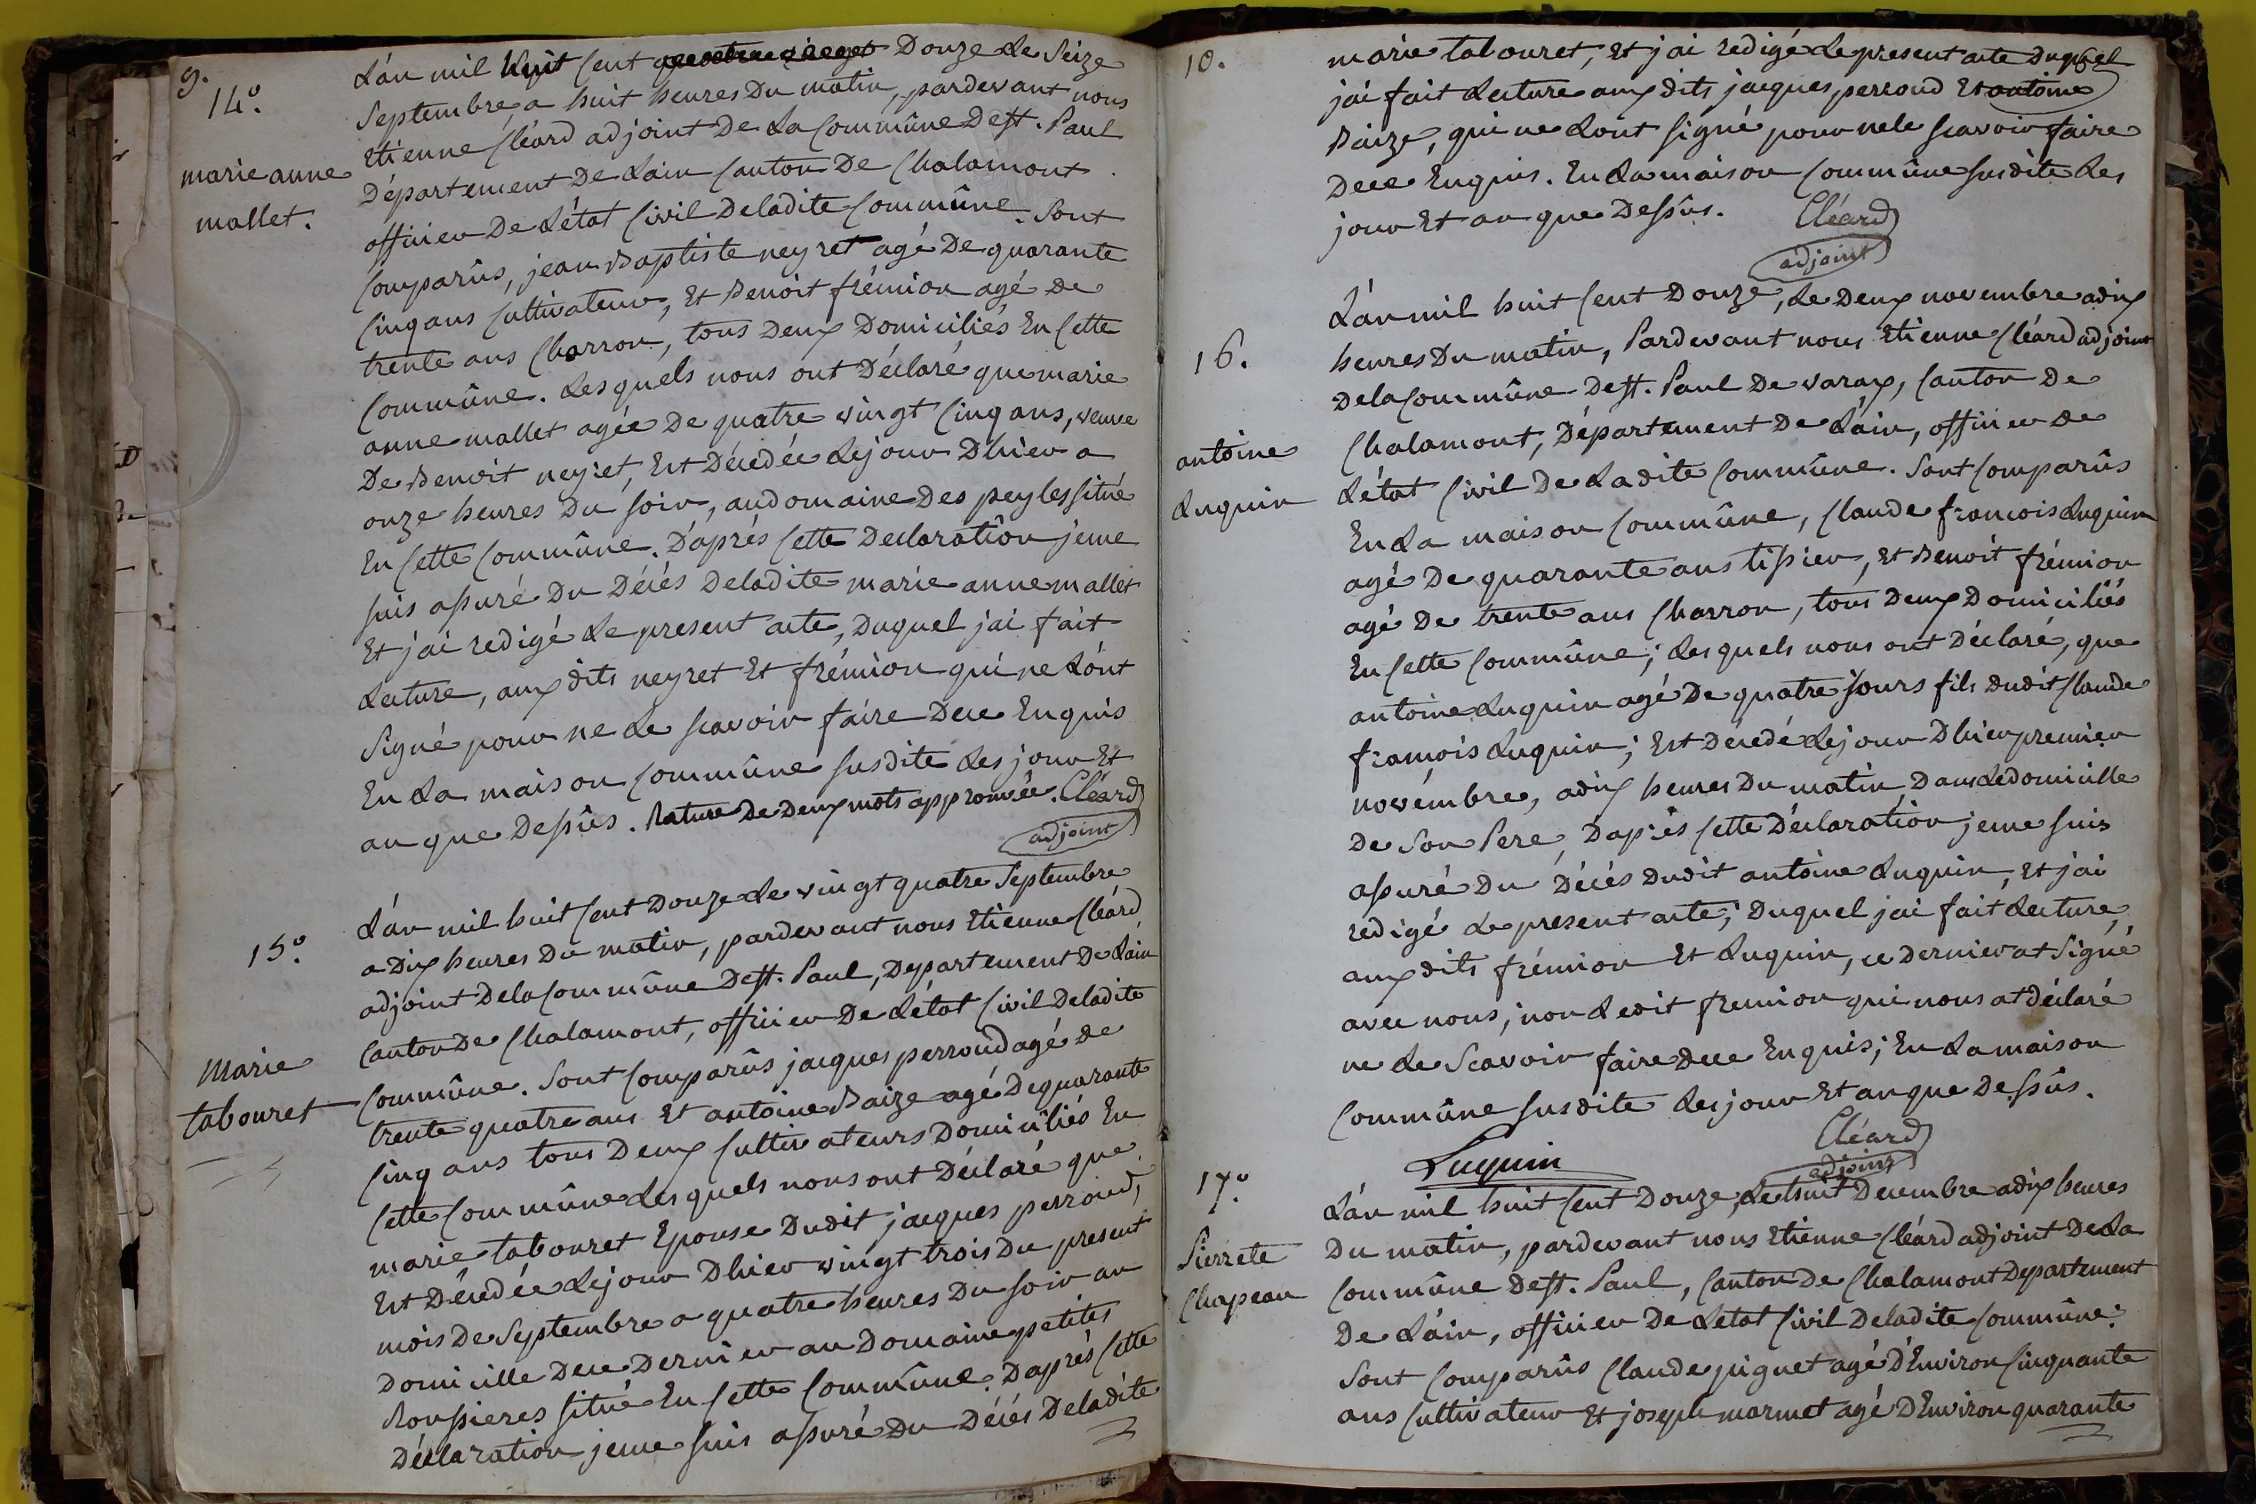 9.
14.°
marie anne
mallet.
L'an mil huit Cent quatre vingt Douze Le Seize
Septembre, a huit heures Du matin, pardevant nous
Etienne Cléard adjoint De La Commûne De st. Paul
Département De L'ain Canton De Chalamont
officier De L'état Civil De ladite Commûne. Sont
Comparûs, jean Baptiste neyret agé De quarante
Cinq ans Cultivateur, Et Benoit frémion agé De
trente ans Charron, tous Deux Domiciliés En Cette
Commûne. Les quels nous ont Déclaré que marie
anne mallet agée De quatre vingt Cinq ans, veuve
De Benoit neyret, Est Décédée Le jour D'hier a
onze heures Du Soir, au domaine Des peyles situé
En Cette Commûne. D'après Cette Declaration je me
suis assuré Du Décés De ladite marie anne mallet
Et j'ai redigé Le present acte, Duquel j'ai fait
Lecture, aux dits neyret Et frémion qui ne L'ont
Signé pour ne Le scavoir faire De ce Enquis
En La maison Commûne susdite Les jour Et
an que Dessûs. Rature De Deux mots approuvée. Cléard
adjoint
15.°
Marie
tabouret
L'an mil huit Cent Douze Le vingt quatre Septembre
a Dix heures Du matin, pardevant nous Etienne Cléard
adjoint De la Commûne De st. Paul, Departement De L'ain
Canton De Chalamont, officier De L'état Civil De ladite
Commûne. Sont Comparûs jacques perroud agé de
trente quatre ans Et antoine Baize agé De quarante
Cinq ans tous Deux Cultivateurs Domiciliés En
Cette Commûne Les quels nous ont Déclaré que
marie tabouret Epouse Dudit jacques perroud,
Est Décédée Le jour D'hier vingt trois Du present
mois De Septembre a quatre heures Du soir au
Domicille De ce Dernier au Domaine petites
Roussieres situé En Cette Commûne. D'après Cette
Déclaration je me suis assuré Du Décés De ladite
10.
marie tabouret, Et j'ai redigé Le present acte Duquel
j'ai fait Lecture aux dits jacques perroud Et antoine
Baize, qui ne L'ont signé pour ne le scavoir faire
De ce Enquis. En La maison Commûne susdite Les
jour Et an que Dessûs. Cléard
adjoint
16.
antoine
Luquin
L'an mil huit Cent Douze, Le Deux novembre a dix
heures Du matin, Pardevant nous Etienne Cléard adjoint
De la Commûne De st. Paul De varax, Canton De
Chalamont, Département De L'ain, officier De
L'état Civil De La dite Commûne. Sont Comparûs
En La maison Commûne, Claude francois Luquin
agé De quarante ans tissier, Et Benoit frémion
agé De trente ans Charron, tous Deux Domiciliés
En Cette Commûne; Les quels nous ont Déclaré, que
antoine Luquin agé De quatre jours fils dudit Claude
françois Luquin; Est Décédé Le jour D'hier premier
novembre, a dix heures Du matin Dans Le domicille
De Son Pere, D'après Cette Déclaration je me suis
assuré Du Décés Dudit antoine Luquin, Et j'ai
redigé Le present acte; Duquel j'ai fait Lecture,
aux dits frémion Et Luquin, ce dernier at Signé
avec nous, non Ledit fremion qui nous at déclaré
ne Le Scavoir faire De ce Enquis; En La maison
Commûne susdite Les jour Et an que Dessûs.
Luquin
Cléard
adjoint
17.°
Pierrete
Chapeau
L'an mil huit Cent Douze, Le huit Decembre a dix heures
Du matin, pardevant nous Etienne Cléard adjoint De La
Commûne De st. Paul, Canton De Chalamont Departement
De L'ain, officier De L'etat Civil De ladite Commûne.
Sont Comparûs Claude piguet agé D'Environ Cinquante
ans Cultivateur Et joseph marmet agé D'Environ quarante